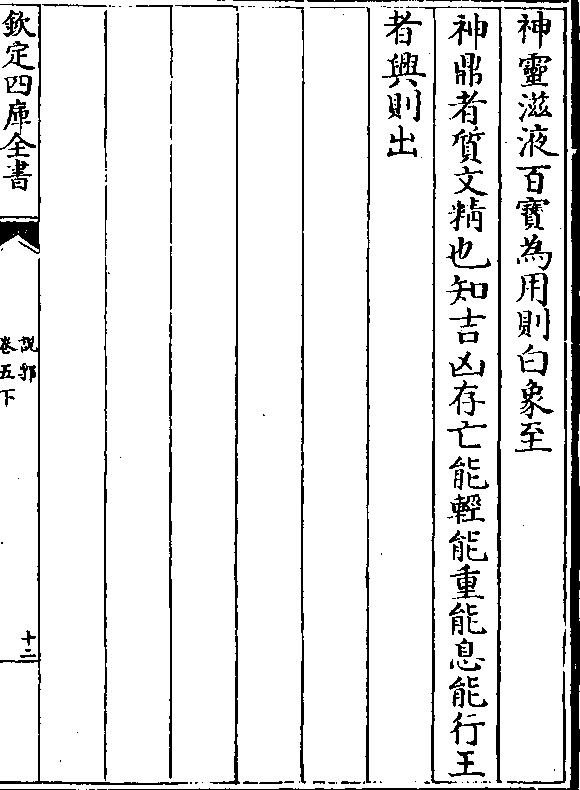 神靈滋液百寶為用則白象至
神鼎者質文精也知吉凶存亡能輕能重能息能行王
者興則出
欽定四庫全書
説郛
卷五下
十二